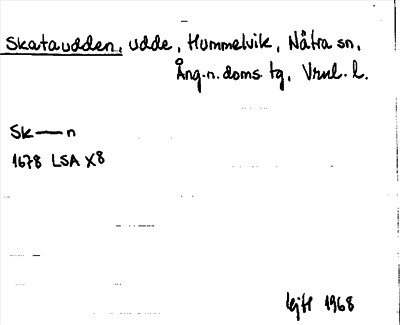 Skataudden, udde, Hummelvik, Nätra sn,
Ång.n.doms.tg, Vrnl. l.
Sk—n
1678 LSA X8
1968